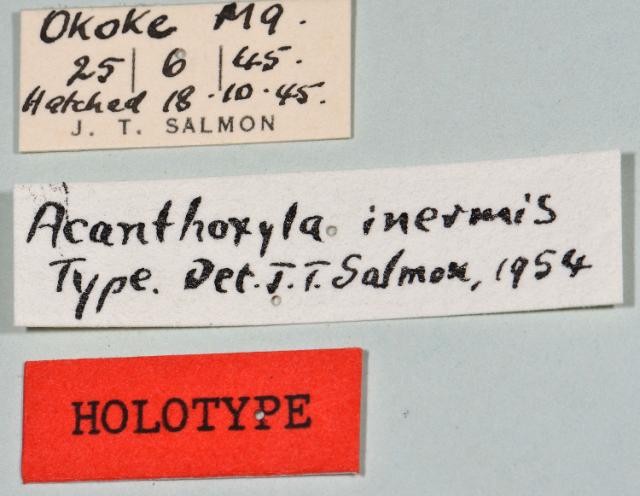 Okoke Mq.
25 | 6 | 45.
Hatched 18.10.45.
J. T. SALMON
Acanthoxyla inermis
Type. Det. J.T. Salmon, 1954
HOLOTYPE